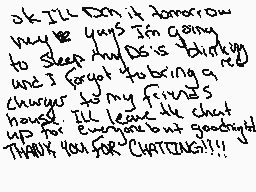 ok I'll Do it tomorrow
hey guys I'm going
to sleep my Dsi's blinking
red
and I forgot to bring a
charger to my friends
house. Ill leave the chat
up for everyone but goodnight
THANK YOU FOR CHATTING!!!!